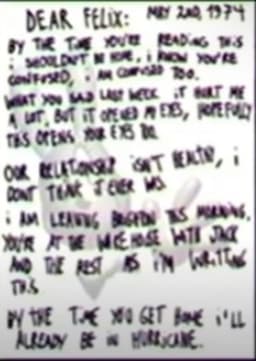 DEAR FELIX: MAY 2ND, 1974
BY THE TIME YOU'RE READING THIS
i SHOULDN'T BE HOME, i KNOW YOU'RE
CONFUSED, i AM CONFUSED TOO.
WHAT YOU SAID LAST WEEK iT HURT ME
A LOT, BUT IT OPENED MY EYES, HOPEFULLY
THIS OPENS YOUR EYES TOO.
OUR RELATIONSHIP ISN'T HEALTHY, i
DON'T THINK IT EVER WAS.
i AM LEAVING THIS MORNING,
YOU'RE AT THE WITH JACK
AND THE REST AS I'M WRITTING
THIS.
BY THE TIME YOU GET HOME i'LL
ALREADY BE IN HURRICANE.